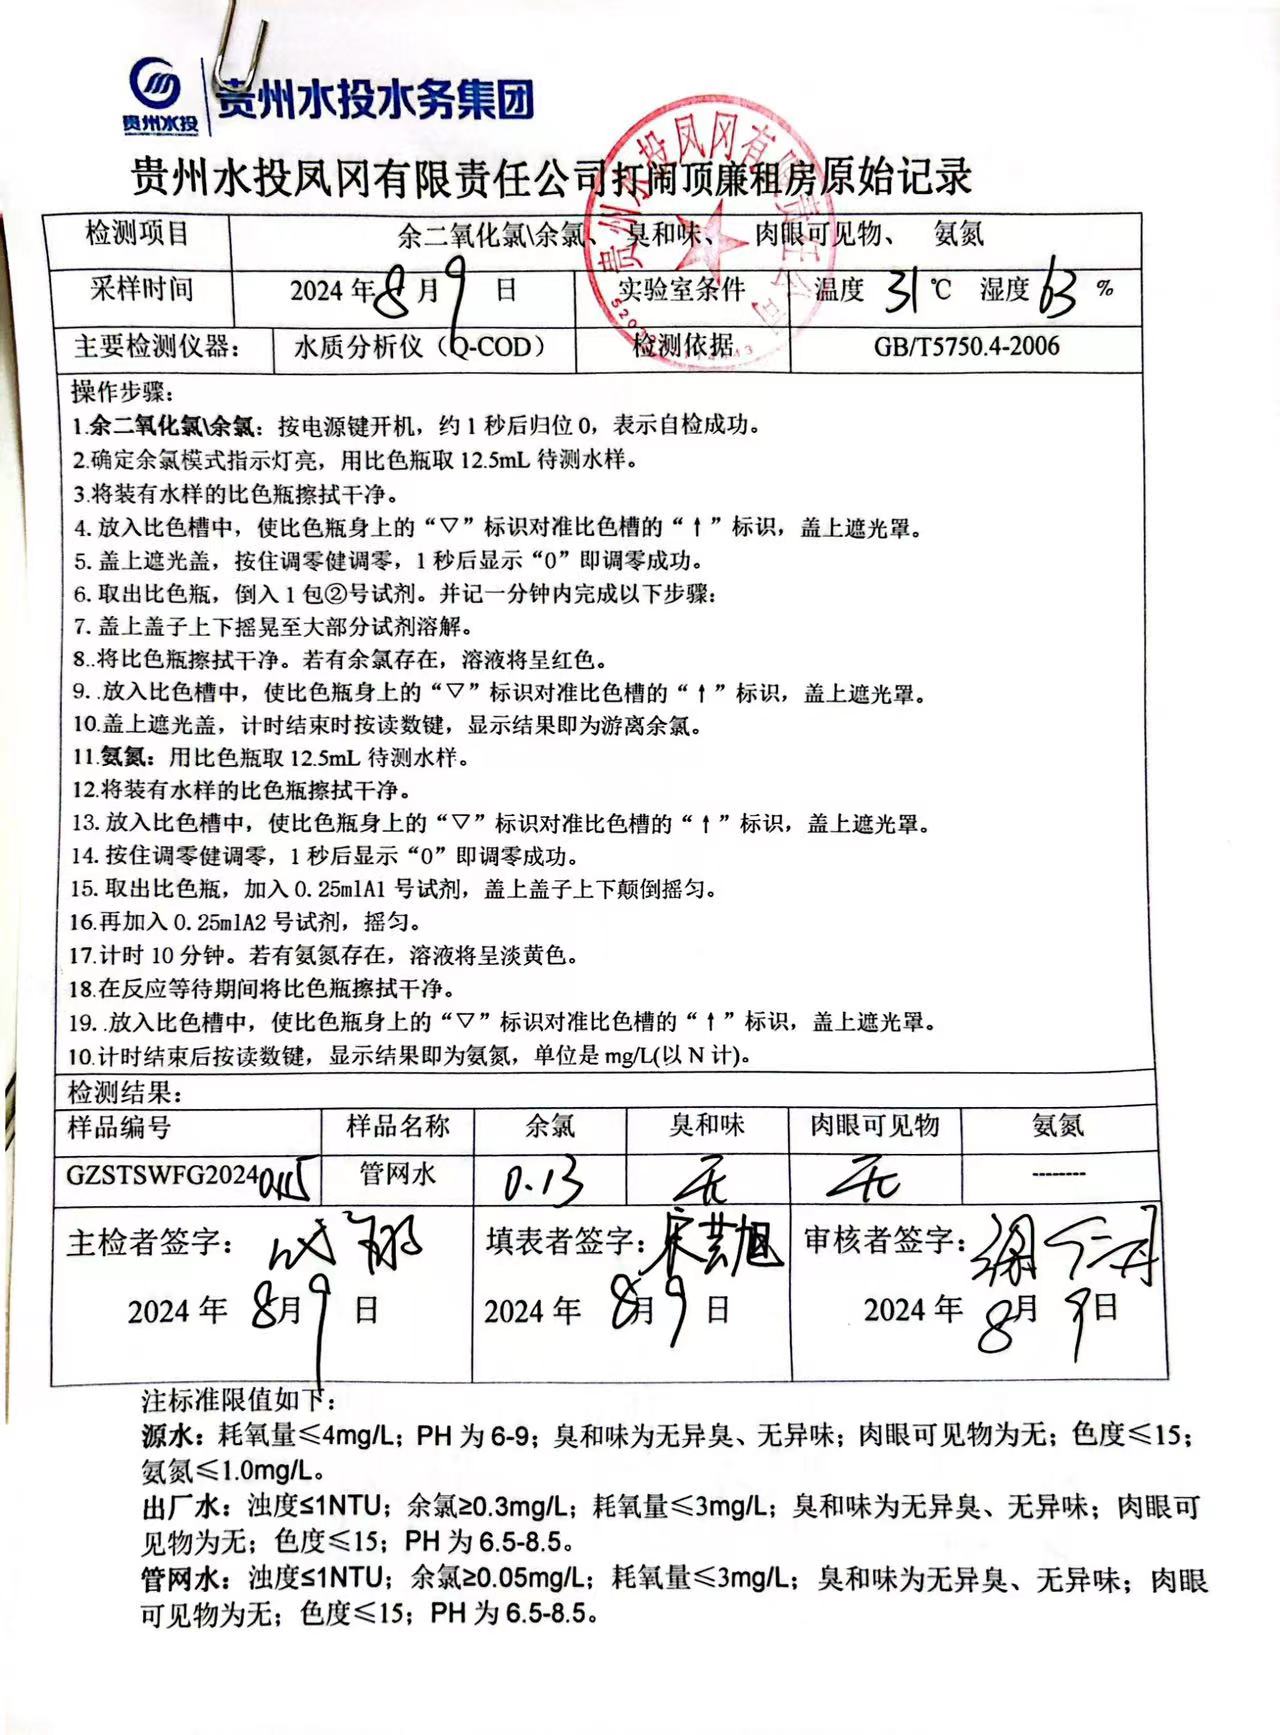 贵州水投 贵州水投水务集团
贵州水投凤冈有限责任公司打闹顶廉租房原始记录
贵州水投凤冈有限责任公司
检测项目 余二氧化氯\余氯、 臭和味、 肉眼可见物、 氨氮
采样时间 2024年8月9日 实验室条件 温度 31℃ 湿度 63 %
主要检测仪器： 水质分析仪（Q-COD） 检测依据 GB/T5750.4-2006
操作步骤：
1.余二氧化氯\余氯：按电源键开机，约1秒后归位0，表示自检成功。
2.确定余氯模式指示灯亮，用比色瓶取12.5mL待测水样。
3.将装有水样的比色瓶擦拭干净。
4. 放入比色槽中，使比色瓶身上的“▽”标识对准比色槽的“↑”标识，盖上遮光罩。
5. 盖上遮光盖，按住调零健调零，1秒后显示“0”即调零成功。
6. 取出比色瓶，倒入1包②号试剂。并记一分钟内完成以下步骤：
7. 盖上盖子上下摇晃至大部分试剂溶解。
8..将比色瓶擦拭干净。若有余氯存在，溶液将呈红色。
9. .放入比色槽中，使比色瓶身上的“▽”标识对准比色槽的“↑”标识，盖上遮光罩。
10.盖上遮光盖，计时结束时按读数键，显示结果即为游离余氯。
11.氨氮：用比色瓶取12.5mL待测水样。
12.将装有水样的比色瓶擦拭干净。
13. 放入比色槽中，使比色瓶身上的“▽”标识对准比色槽的“↑”标识，盖上遮光罩。
14. 按住调零健调零，1秒后显示“0”即调零成功。
15. 取出比色瓶，加入0.25mlA1号试剂，盖上盖子上下颠倒摇匀。
16.再加入0.25mlA2号试剂，摇匀。
17.计时10分钟。若有氨氮存在，溶液将呈淡黄色。
18.在反应等待期间将比色瓶擦拭干净。
19. .放入比色槽中，使比色瓶身上的“▽”标识对准比色槽的“↑”标识，盖上遮光罩。
10.计时结束后按读数键，显示结果即为氨氮，单位是mg/L(以N计)。
检测结果：
样品编号 样品名称 余氯 臭和味 肉眼可见物 氨氮
GZSTSWFG2024 管网水 0.13 无 无 --------
主检者签字： 填表者签字： 审核者签字：
2024年8月9日 2024年8月9日 2024年8月9日
注标准限值如下：
源水：耗氧量≤4mg/L；PH为6-9；臭和味为无异臭、无异味；肉眼可见物为无；色度≤15；
氨氮≤1.0mg/L。
出厂水：浊度≤1NTU；余氯≥0.3mg/L；耗氧量≤3mg/L；臭和味为无异臭、无异味；肉眼可
见物为无；色度≤15；PH为6.5-8.5。
管网水：浊度≤1NTU；余氯≥0.05mg/L；耗氧量≤3mg/L；臭和味为无异臭、无异味；肉眼
可见物为无；色度≤15；PH为6.5-8.5。